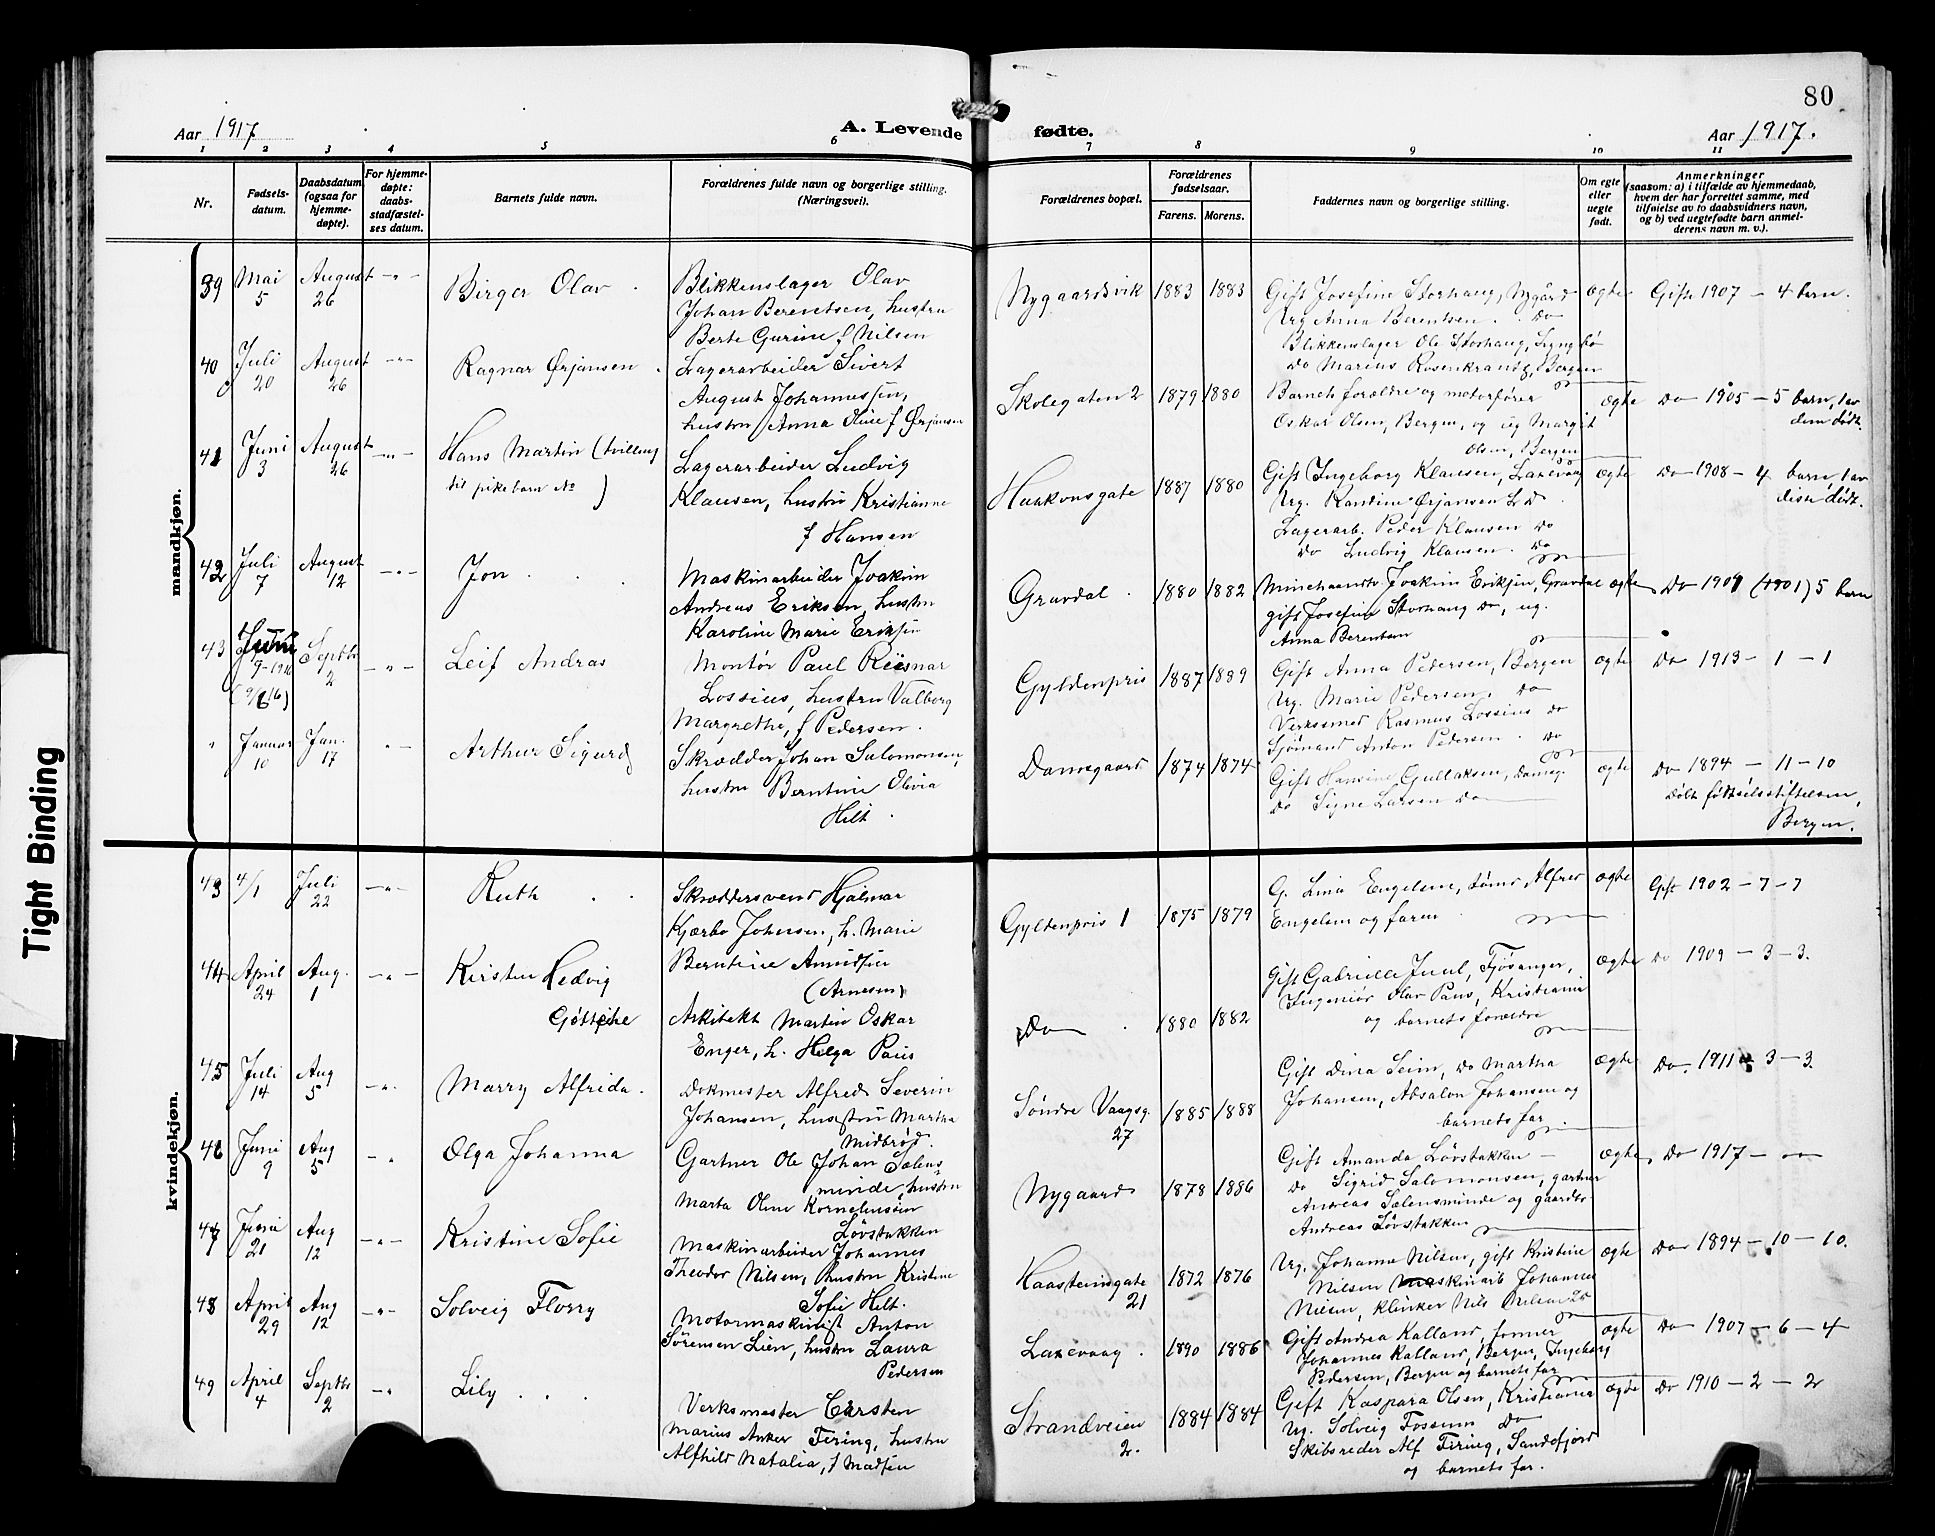 80
Aar 1917
A. Levende
fødte.
Aar 1917.
1 2 3 4 5 6 7 8 9 10 11
Nr.
Fødsels-
datum.
Daabsdatum
(ogsaa for
hjemme-
døpte).
For hjemme-
døpte:
daabs-
stadfæstel-
ses datum.
Barnets fulde navn.
Forældrenes fulde navn og borgerlige stilling.
(Næringsvei).
Forældrenes bopæl.
Forældrenes
fødselsaar.
Farens. Morens.
Faddernes navn og borgerlige stilling.
Om egte
eller
uegte
født.
Anmerkninger
(saasom: a) i tilfælde av hjemmedaab,
hvem der har forrettet samme, med
tilføielse av to daabsvidners navn,
og b) ved uegtefødte barn anmel-
derens navn m. v.).
mandkjøn.
39
Mai
5
August
26
Birger Olav
Blikkenslager Olav
Johan Berentsen, hustru
Berte Gurine f Nilsen
Nygaardsvik
1883
1883
Gift Josefine Storhaug, Nygård
Ug Anna Berentsen. Do
Blikkenslager Ole Storhaug, Lyngbø
do Marius Rosenkrands, Bergen
ægte
Gifte 1907 - 4 barn.
40
Juli
20
August
26
Ragnar Ørjansen
Lagerarbeider Sivert
August Johannessen,
hustru Anna Oline f Ørjansen
Skolegaten 2
1879
1880
Barnets forældre og motorfører
Oskar Olsen, Bergen, og ug Margit
Olsen, Bergen
ægte
Do 1905 - 5 barn, 1 av
dem dødt.
41
Juni
3
August
26
Hans Martin (tvilling
til pikebarn No )
Lagerarbeider Ludvig
Klausen, hustru Kristianne
f Hansen
Haakonsgate
1887
1880
Gift Ingeborg Klausen, Laxevaag
Ug. Kandine Ørjansen Do
Lagerarb. Peder Klausen Do
Do Ludvig Klausen. Do
ægte
Do 1908 - 4 barn, 1 av
disse dødt.
42
Juli
7
August
12
Jon
Maskinarbeider Joakim
Andreas Eriksen, hustru
Karoline Marie Eriksen
Gravdal
1880
1882
Joakim Eriksen, Gravdal
gift Josefine Storhaug Do, ug.
Anna Berentsen
ægte
Do 1901 (1901) 5 barn
43
Juni
9-1916
(9/6 16)
Septbr
2
Leif Andras
Montør Paul Riisnar
Lossius, hustru Valborg
Margrethe, f Pedersen.
Gyldenpris
1887
1889
Gift Anna Pedersen, Bergen
Ug. Marie Pedersen. Do
Verkssmed Rasmus Lossius Do
Sjømand Anton Pedersen. Do
ægte
Do 1913 - 1 - 1
"
Januar
10
Jan.
17
Arthur Sigurd
Skrædder Johan Salomonsen,
hustru Berntine Olivia
Hilt.
Damsgaard
1874
1874
Gift Hansine Gullaksen, Damsg.
Do Signe Larsen Do
ægte
Do 1894 - 11 - 10
Døbt fødselsstiftelsen,
Bergen.
kvindekjøn.
43
4/1
Juli
22
Ruth
Skræddersvend Hjalmar
Kjærbo Johensen, h. Marie
Berntine Amundsen
(Arnesen)
Gyldenpris 1
1875
1879
G. Lina Engelsen, Alfred
Engelsen og faren
ægte
Gift 1902 - 7 - 7
44
April
24
Aug.
1
Kirsten Hedvig
Göttsche
Arkitekt Martin Oskar
Enger, h. Helga Paus
Do
1880
1882
Gift Gabrielle Juul, Fjøsanger,
Ingeniør Olav Paus, Kristiania
og barnets forældre
ægte
Do 1909 - 3 - 3.
45
Juli
14
Aug
5
Marry Alfrida.
Dokmester Alfred Severin
Johansen, hustru Martha
Midbrød.
Søndre Vaagsg.
27
1885
1888
Gift Dina Seim, Do Martha
Johansen, Absalon Johansen og
barnets far.
ægte
Do. 1911 - 3 - 3.
46
Juni
9
Aug
5
Olga Johanna
Gartner Ole Johan Sælens
minde, hustru
Marta Oline Kornelinsen
Løvstakken
Nygaard
1878
1886
Gift Amanda Løvstakken -
Do Sigrid Salomonsen, gartner
Andreas Sælensminde og gaardbr
Andreas Løvstakken
ægte
Do 1917 -
47
Juni
21
Aug
12
Kristine Sofie
Maskinarbeider Johannes
Theodor Nilsen, hustru Kristine
Sofie Hilt.
Kaasteinsgate
21
1872
1876
Ug. Johanna Nilsen, gift Kristine
Nilsen maskinarb Johannes
Nilsen, klinker Nils Nilsen Do
ægte
Do 1894 - 10 - 10.
48
April
29
Aug
12
Solveig Florry
Motormaskinist Anton
Sørensen Lien, hustru Laura
Pedersen
Laxevaag
1890
1886
Gift Andrea Kalland, former
Johannes Kalland, Bergen, Ingeborg
Pedersen, Bergen og barnets far
ægte
Do 1907 - 6 - 4
49
April
4
Septbr
2
Lily
Verksmester Carsten
Marius Anker Firing, hustru
Alfhild Natalia, f Madsen
Strandveien
2.
1884
1884
Gift Kaspara Olsen, Kristiania
Ug. Solveig Fossum Do
Skibsreder Alf Firing, Sandefjord
og barnets far.
ægte
Do 1910 - 2 - 2
Tight Binding